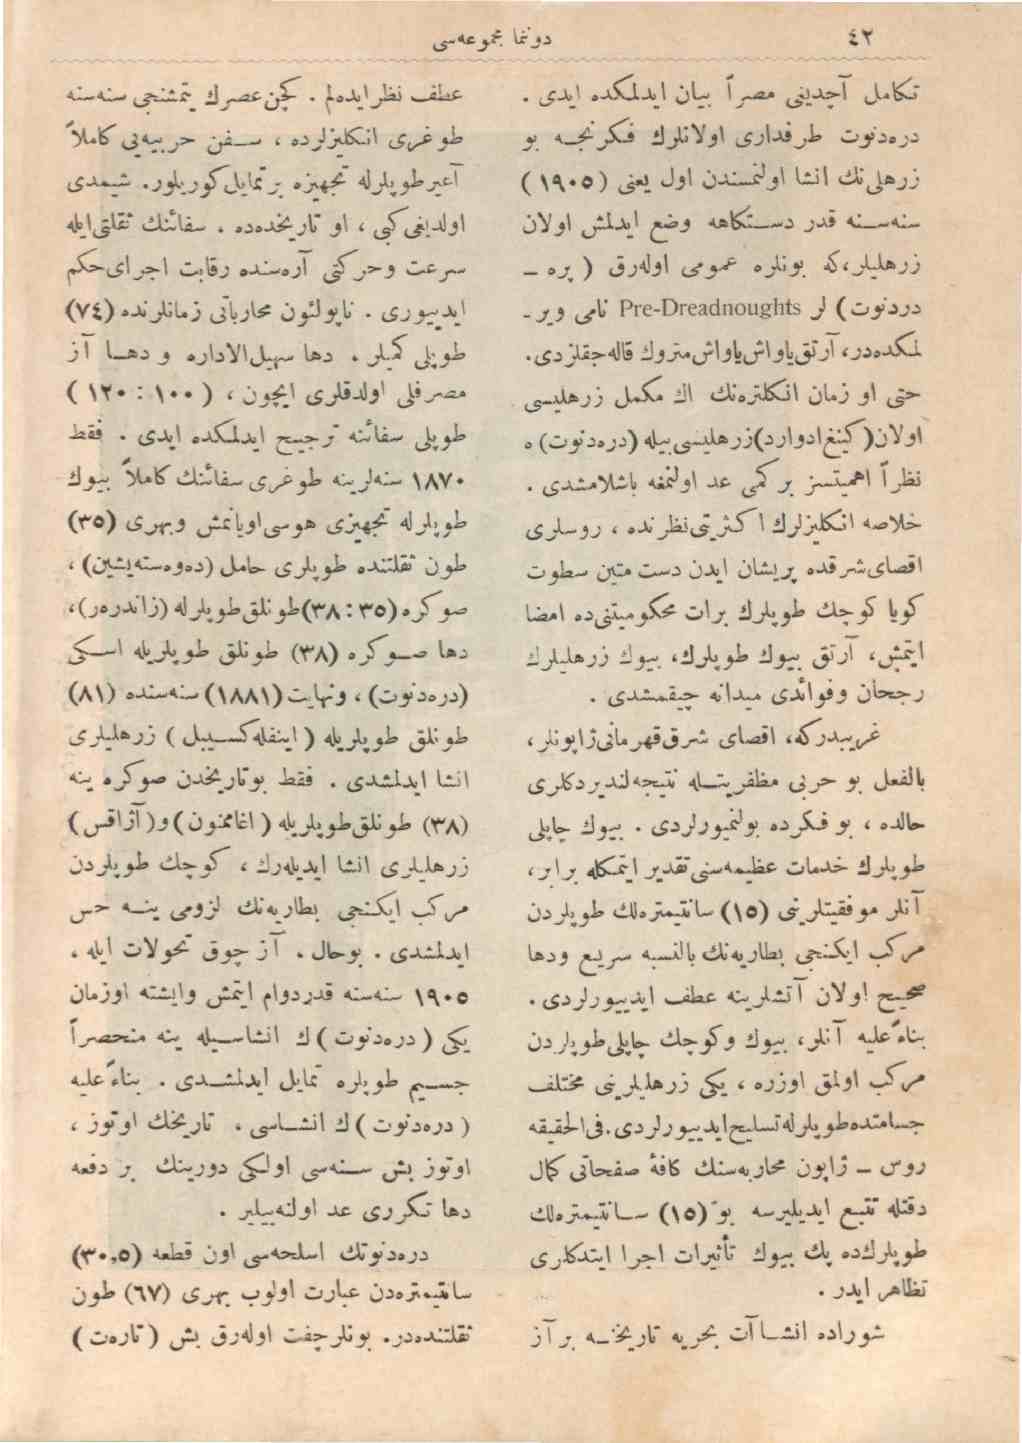 ٤٢
دوننما مجموعه‌سی
تكامل آچدیغی مصراً بیان ایدلمكده ایدی .
دره‌دنوت طرفداری اولانلرك فكرنجه بو
زرهلی‌نك انشا اولنمسندن اول یعنی (١٩٠٥)
سنه‌سنه قدر دستكاهه وضع ایدلمش اولان
زرهلیلر،كه بونلره عمومی اوله‌رق ( پره –
دردنوت) لر Pre-Dreadnoughts نامی ویر-
لمكده‌در، آرتق یاواش یاواش متروك قاله‌جقلردی.
حتی او زمان انكلتره‌نك اك مكمل زرهلیسی
اولان(كینغ ادوارد)زرهلیسی بیله (دره‌دنوت) ه
نظراً اهمیتسز بر كمی عد اولنمغه باشلامشدی .
خلاصه انكلیزلرك اكثریتی نظرنده ، روسلری
اقصای شرقده پریشان ایدن دست متین سطوت
كویا كوچك طوپلرك برات محكومیتنی‌ده امضا
ایتمش، آرتق بیوك طوپلرك، بیوك زرهلیلرك
رجحان وفوائدی میدانه چیقمشدی .
غریبدركه، اقصای شرق قهرمانی ژاپونلر،
بالفعل بو حربی مظفریتله نتیجه‌لندیردكلری
حالده ، بو فكرده بولنمیورلردی . بیوك چاپلی
طوپلرك خدمات عظیمه‌سنی تقدیر ایتمكله برابر،
آنلر موفقیتلرینی (١٥) سانتیمتره‌لك طوپلردن
مركب ایكنجی بطاریه‌نك بالنسبه سریع ودها
صحیح اولان آتشلرینه عطف ایدییورلردی .
بناءً علیه آنلر، بیوك وكوچك چاپلی طوپلردن
مركب اولمق اوزره ، یكی زرهلیلرینی مختلف
جسامتده طوپلرله تسلیح ایدییورلردی. فی‌الحقیقه
روس – ژاپون محاربه‌سنك كافهٔ صفحاتی كمال
دقتله تتبع ایدیلیرسه بو (١٥) سانتیمتره‌لك
طوپلرك‌ده پك بیوك تأثیرات اجرا ایتدكلری
تظاهر ایدر .
شوراده انشاآت بحریه تاریخنه بر آز
عطف نظر ایده‌لم . كچن عصرك یتمشنجی سنه‌سنه
طوغری انكلیزلرده ، سفن حربیه‌یی كاملاً
آغیر طوپلرله تجهیزه بر تمایل كوریلور. شیمدی
اولدیغی كبی ، او تاریخده‌ده . سفائنك ثقلتی ایله
سرعت وحركتی آره‌سنده رقابت اجرای حكم
ایدییوری . ناپولئون محارباتی زمانلرنده (٧٤)
طوپلی كمیلر . دها سهیل‌الاداره و دها آز
مصرفلی اولدقلری ایچون ، ( ١٠٠ : ١٢٠ )
طوپلی سفائنه ترجیح ایدلمكده ایدی . فقط
١٨٧٠ سنه‌لرینه طوغری سفائنك كاملاً بیوك
طوپلرله تجهیزی هوسی اویانمش وبهری (٣٥)
طون ثقلتنده طوپلری حامل (ده‌وه‌سته‌یشین) ،
صوكره (٣٥ : ٣٨) طونلق طوپلرله (زاندره‌ر)،
دها صوكره (٣٨) طونلق طوپلریله اسكی
(دره‌دنوت) ، ونهایت (١٨٨١) سنه‌سنده (٨١)
طونلق طوپلریله ( اینفله‌كسیبل ) زرهلیلری
انشا ایدلمشدی . فقط بو تاریخدن صوكره ینه
(٣٨) طونلق طوپلریله ( اغاممنون ) و( آژاقس )
زرهلیلری انشا ایدیله‌رك ، كوچك طوپلردن
مركب ایكنجی بطاریه‌نك لزومی ینه حس
ایدلمشدی . بوحال . آز چوق تحولات ایله ،
١٩٠٥ سنه‌سنه قدر دوام ایتمش وایشته اوزمان
یكی ( دره‌دنوت )ك انشاسیله ینه منحصراً
جسیم طوپلره تمایل ایدلمشدی . بناءً علیه
( دره‌دنوت )ك انشاسی ، تاریخك اوتوز ،
اوتوز بش سنه‌سی اولكی دورینك بر دفعه
دها تكرری عد اولنه‌بیلیر .
دره‌دنوتك اسلحه‌سی اون قطعه (٣٠,٥)
سانتیمتره‌دن عبارت اولوب بهری (٦٧) طون
ثقلتنده‌در. بونلر چفت اوله‌رق بش ( تاره‌ت )